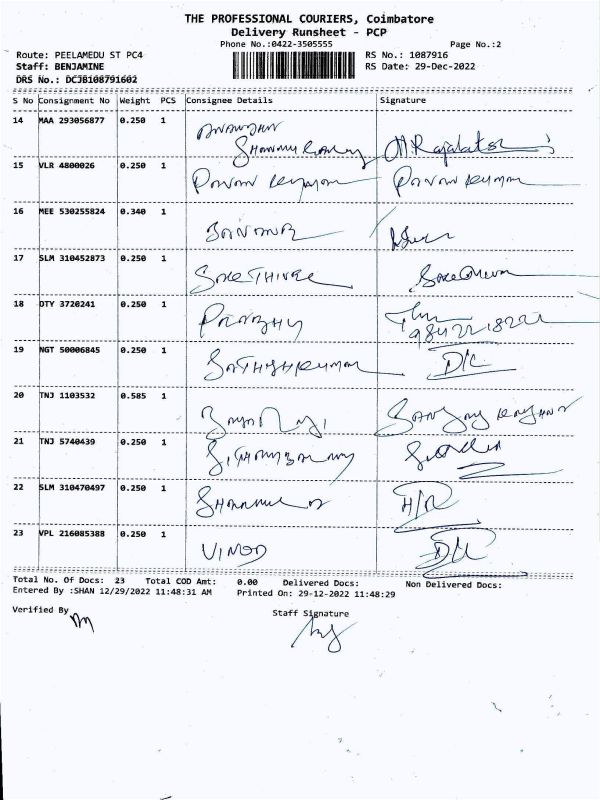 THE PROFESSIONAL COURIERS, Coimbatore
Delivery Runsheet - PCP
Phone No.:0422-3505555 Page No.:2
Route: PEELAMEDU ST PC4 RS No.: 1087916
Staff: BENJAMINE RS Date: 29-Dec-2022
DRS No.: DCJB108791602
S No Consignment No Weight PCS Consignee Details Signature
14 MAA 293056877 0.250 1
15 VLR 4800026 0.250 1 Pavan Kumar
16 MEE 530255824 0.340 1
17 SLM 310452873 0.250 1 SAKTHIVEL
18 DTY 3720241 0.250 1 PRABHU
19 NGT 50006845 0.250 1 SATHISHKUMAR D/C
20 TNJ 1103532 0.585 1
21 TNJ 5740439 0.250 1
22 SLM 310470497 0.250 1 H/R
23 VPL 216085388 0.250 1 VINOD D/C
Total No. Of Docs: 23 Total COD Amt: 0.00 Delivered Docs: Non Delivered Docs:
Entered By :SHAN 12/29/2022 11:48:31 AM Printed On: 29-12-2022 11:48:29
Verified By Staff Signature